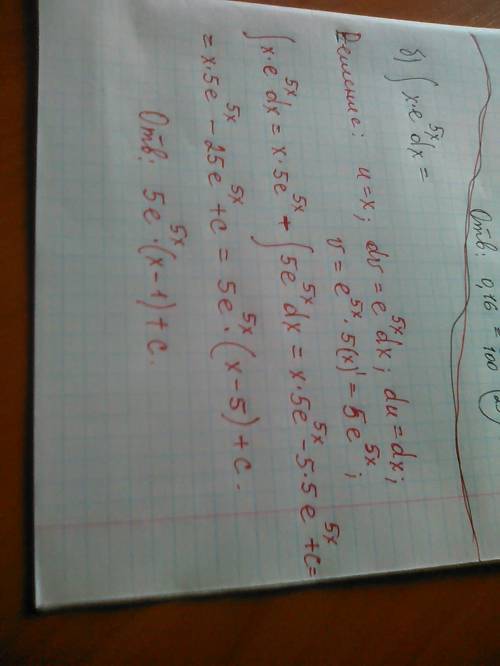 Отв: 0,16 = 100
б) ∫ x·e^5x dx =
Решение: u = x; dv = e^5x dx; du = dx;
v = e^5x · 5(x)' = 5e^5x;
∫ x·e^5x dx = x·5e^5x + ∫ 5e^5x dx = x·5e^5x − 5·5e^5x + c =
= x·5e^5x − 25e^5x + c = 5e^5x · (x − 5) + c.
Отв: 5e^5x · (x − 1) + c.